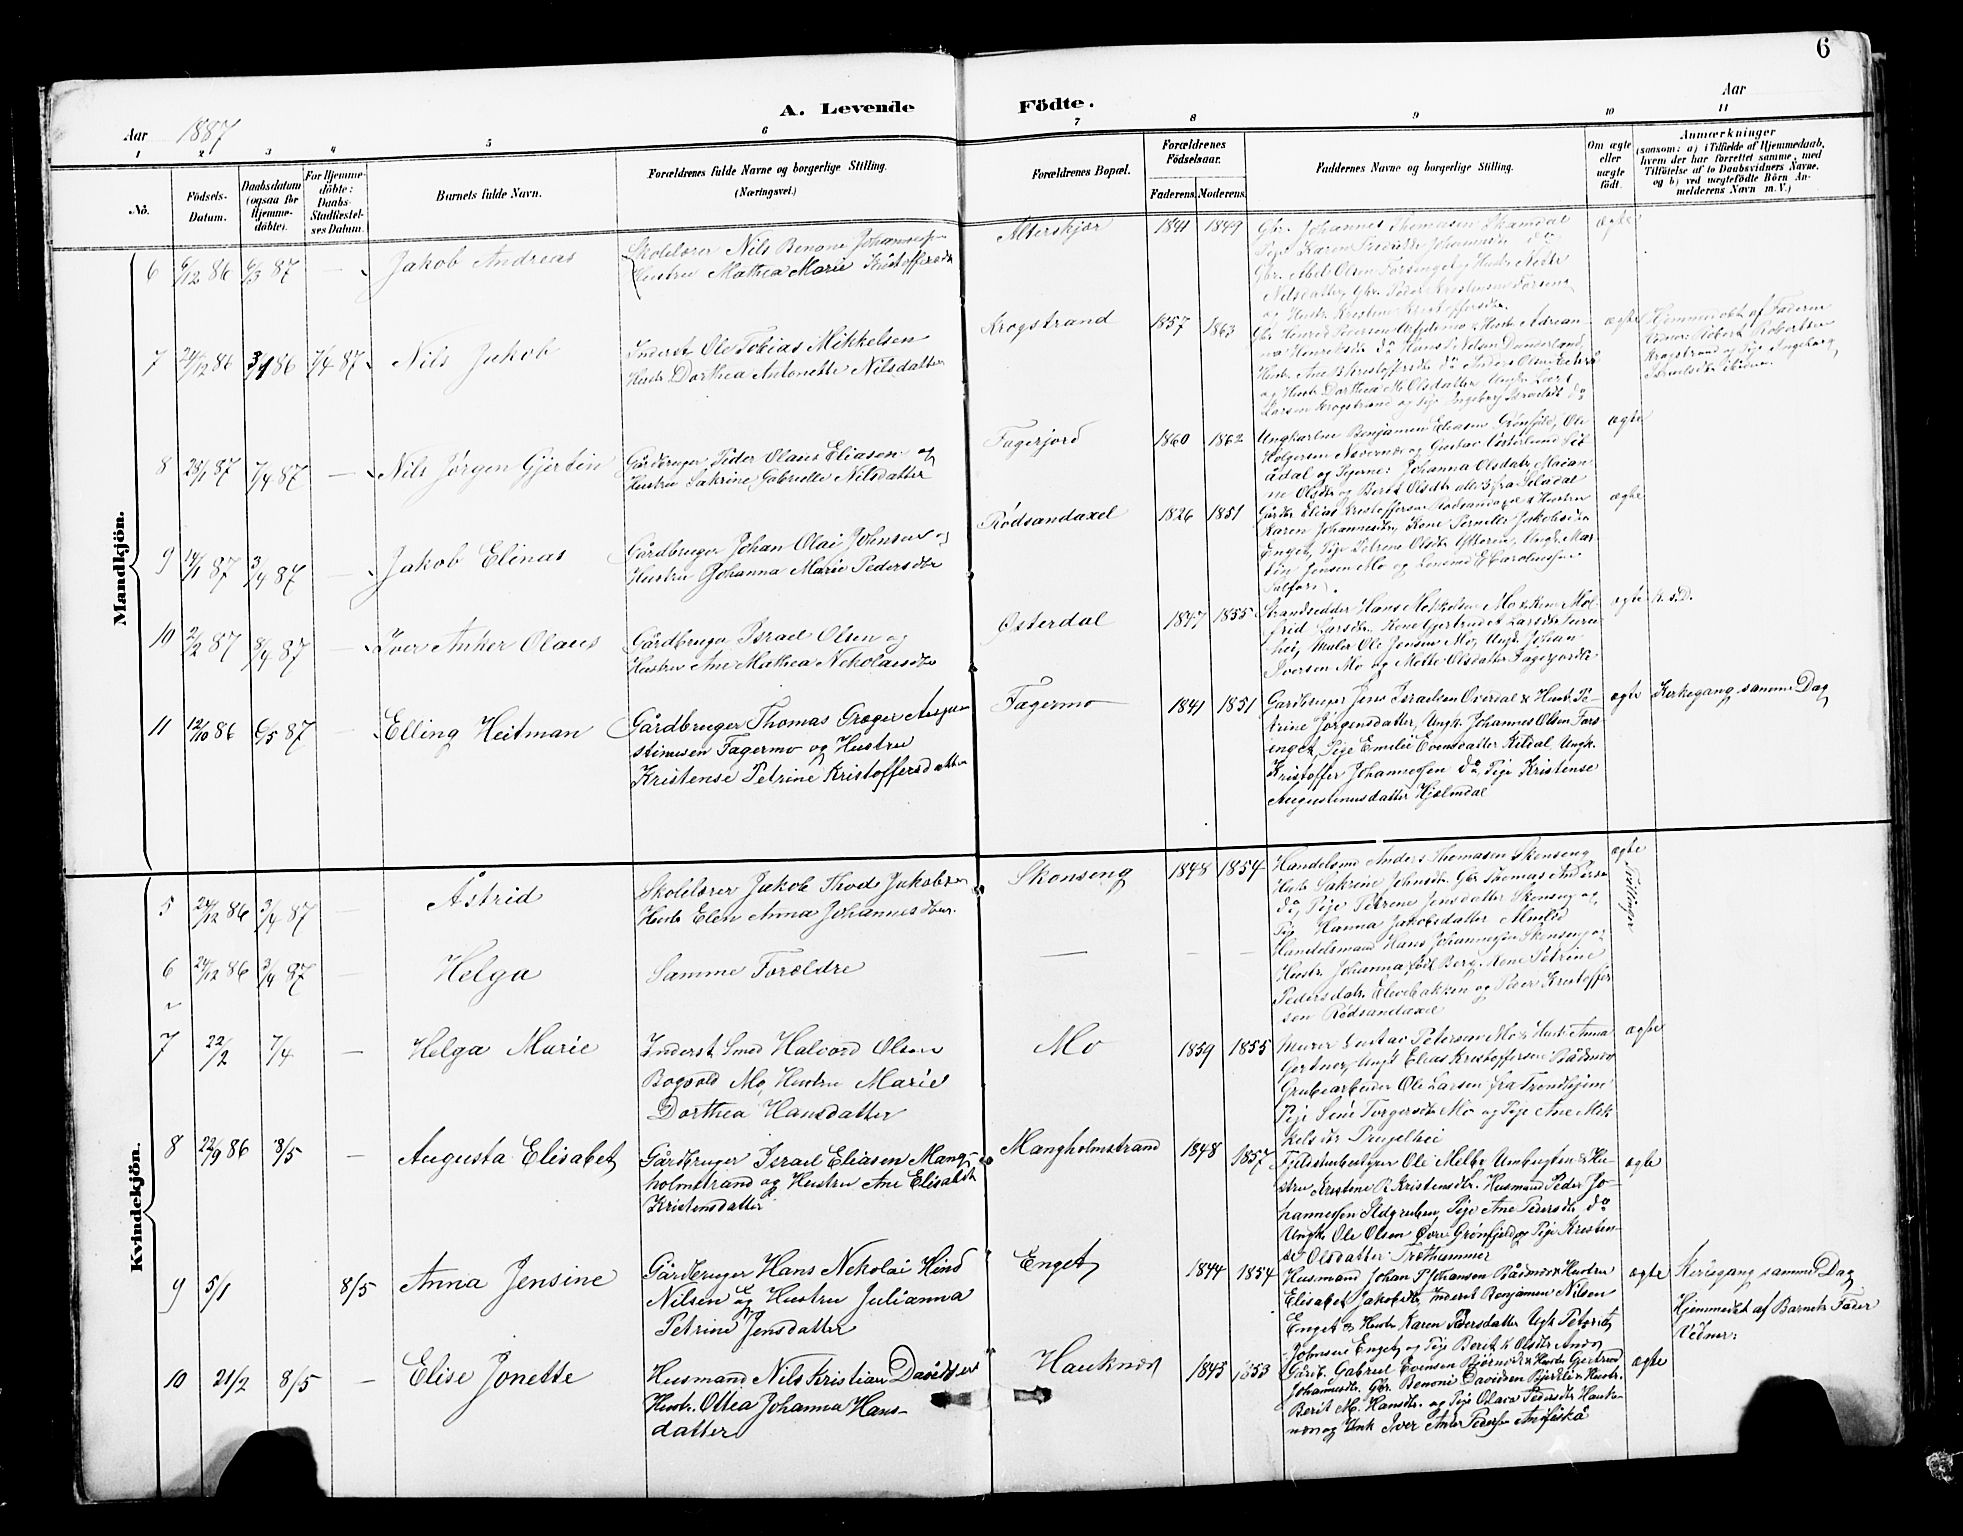 6
A. Levende Födte.
Aar 1887
Aar
1 2 3 4 5 6 7 8 9 10 11
Nô.
Födsels-
Datum.
Daabsdatum
(ogsaa for
Hjemme-
döbte).
For Hjemme-
döbte:
Daabs-
Stadfæstel-
ses Datum.
Barnets fulde Navn.
Forældrenes fulde Navne og borgerlige Stilling.
(Næringsvei.)
Forældrenes Bopæl.
Forældrenes
Födselsaar.
Faderens. Moderens.
Faddernes Navne og borgerlige Stilling.
Om ægte
eller
uægte
født.
Anmærkninger
(saasom: a) i Tilfælde af Hjemmedaab,
hvem der har forrettet samme, med
Tilføielse af to Daabsvidners Navne,
og b) ved uægtefödte Börn An-
melderens Navn m. V.)
Mandkjön.
6 6/12 86 6/3 87 — Jakob Andreas
Skolelærer Nils Benoni Johannessen
Hustru Mathea Marie Kristoffersdtr
Alterskjær 1841 1849
Gbr. Johannes Thomasen Skamdal
Pige Karen Fredrikke Johannesd. do
Gbr. Abel Olsen Forsinget, Hustr.
Nilsdatter, Gbr. Peder Kristensen
og Hustr. Kristine Kristoffersdtr.
ægte
7 24/12 86 3/1 86 7/4 87 Nils Jakob
Inderst Ole Tobias Mikkelsen
Hustr Dorthea Antonette Nilsdatter
Krogstrand 1857 1863
Hans Nilsen Dunderland,
Hustr. Ane B. Kristoffersdtr do Anders Olsen
og Hustr Dorthea M. Olsdatter Ungk. Lars
Larsen Krogstrand og Pige Ingeborg Israelsdtr do
ægte
Hjemmedøbt af Faderen
Vidner: Robert Robertsen
Krogstrand og Pige Ingeborg
8 28/1 87 7/4 87 — Nils Jørgen Gjertin
Gårdbruger Peder Olaus Eliasen og
Hustru Sakrine Gabrielle Nilsdatter
Fagerjord 1860 1862
Ungkarlene Benjamin Eliasen Grønfjeld, Ole
Holgersen Nævernes og Gustav
ådal og Pigerne: Johanna Olsdatr Marian-
ne Olsdtr og Berit Olsdtr alle 3 fra
ægte
9 14/1 87 3/4 87 — Jakob Elinas
Gårdbruger Johan Olai Johnsen og
Hustru Johanna Marie Pedersdtr
Rödsandaxel 1826 1851
Gårdbr Elias Kristoffersen Rödsandaxel & Hustru
Karen Johannesdtr, Kone Pernille Jakobsdtr
Enget, Pige Petrine Olsdtr Ytteren, Ungk. Mar-
tin Jensen Mo og
ægte
10 2/2 87 8/4 87 — Iver Anker Olaus
Gårdbruger Israel Olsen og
Hustru Ane Mathea Nikolaisdtr
Østerdal 1847 1855
Strandsidder Hans Mikkelsen Mo & Kone Mal-
frid Larsdtr. Kone Gjertrud Et Larsdtr
hei, Maler Ole Jensen Mo, Ungk. Johan
Iversen Mo og Mette Olsdatter Fagerjordli
ægte K. s. D.
11 12/10 86 6/5 87 — Elling Heitman
Gårdbruger Thomas Græger Augu-
stinusen Fagermo og Hustru
Kristense Petrine Kristoffersdatter
Fagermo 1841 1851
Gårdbruger Jens Israelsen Overdal & Hustr. Pe-
trine Jørgensdatter, Ungk. Johannes Olsen Fors-
inget, Pige Emilie Evensdatter Kildal, Ungk.
Kristoffer Johannessen do, Pige Kristense
Augustinusdatter Hjælmdal
ægte Kirkegang samme Dag
Kvindekjön.
5 24/12 86 3/4 87 — Åstrid
Skolelærer Jakob Thode Jakobsen
Hustr Elen Anna Johannesdtr.
Skonseng 1848 1854
Handelsmd Anders Thomasen Skonseng
Hustr Sakrine Johnsdtr Gbr Thomas Anderse
do, Pige Petrine Jensdatter Skonseng og
Pige Hanna Jakobsdatter
ægte
Tvillinger
6 24/12 86 3/4 87 — Helga
Samme Forældre
— — —
Handelsmand Hans Johannessen Skonseng og
Hustr. Johanna født Berg. Kone Petrine
Pedersdatr. Elvebakken og Peder Kristoffer
sen Rödsandaxel
7 22/2 7/4 — Helga Marie
Inderst Smed Halvord Olsen
Bogvold Mo, Hustru Marie
Dorthea Hansdatter
Mo 1859 1855
Murer Gustav Petersen Mo & Hustr Anna
Gertner, Ungk Elias Kristoffersen Båsmo
Grubearbeider Ole Larsen fra Trondhjem
Pige Sine Torgersdtr Mo og Pige Ane Mik-
kelsdtr
ægte
8 22/9 86 8/5 — Augusta Elisabet
Gårdbruger Israel Eliasen Mang-
holmstrand og Hustru Ane Elisabeth
Kristensdatter
Mangholmstrand 1848 1857
Fjeldstubestyrer Ole Melbø Umbugten & Hu-
stru Kristine B. Kristensdtr. Husmand Peder Jo-
hannessen Ildgruben, Pige Ane Pedersdtr do
Ungk. Ole Olsen Øvre Grønfjeld og Pige Kristen-
se Olsdatter Træthammer
ægte
9 5/1 8/5 Anna Jensine
Gårdbruger Hans Nikolai Hind
Nilsen Et og Hustru Julianna
Petrine Jensdatter
Enget 1844 1854
Husmand Johan P. Johansen Båsmo & Hustru
Elisabet Jakobsdtr, Inderst Benjamin Nilsen
Enget & Hustr Karen Pedersdatter Ungk Peter
Johnsen Enget og Pige Berit K Olsdtr
ægte Kirkegang samme Dag
Hjemmedøbt af Barnets Fader
Vidner:
10 21/2 8/5 — Elise Jonette
Husmand Nils Kristian Davidsen
Hustr. Ottea Johanna Hans-
datter
Hauknæs 1843 1853
Gårdb. Gabriel Evensen Bjørnå & Hustr Gjertrud
Johannesdtr. Gbr. Benoni Davidsen Bjerkli & Hustr.
Berit M. Hansdtr. og Pige Olava Pedersdtr Hauk-
næs og Unk Iver Peder Andfiskå
ægte